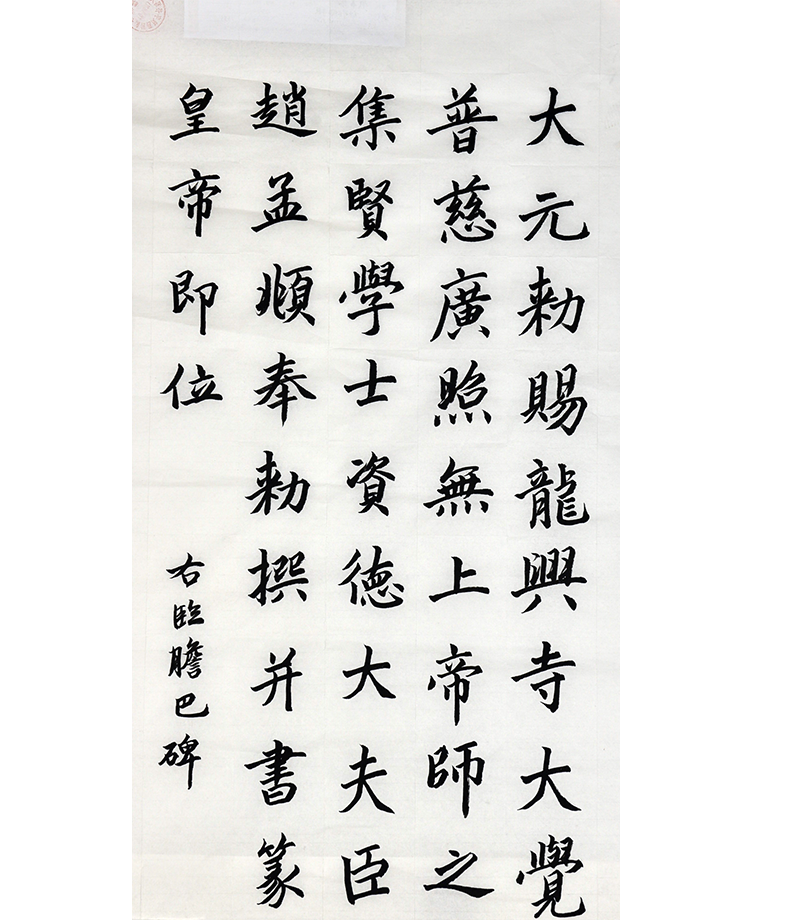 大元勅賜龍興寺大覺
普慈廣照無上帝師之
集賢學士資德大夫臣
趙孟頫奉勅撰并書篆
皇帝即位
右臨膽巴碑